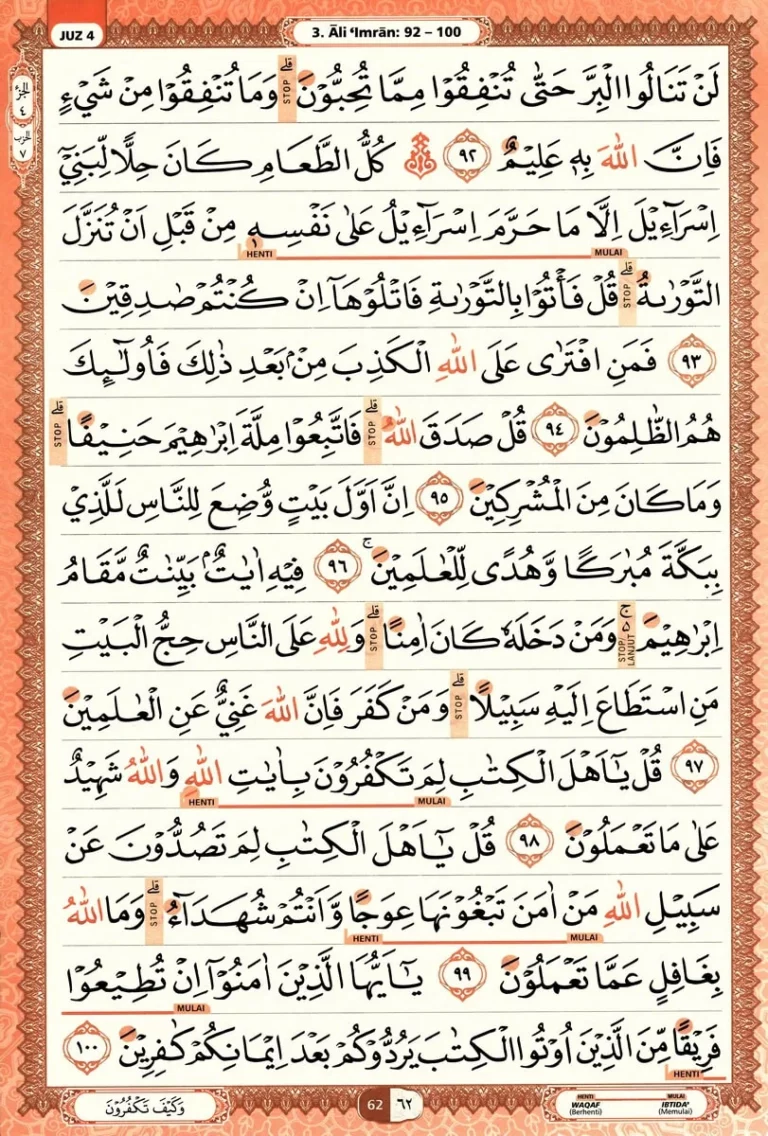 JUZ 4
3. Āli ‘Imrān: 92 – 100
الجزء ٤
الحزب ٧
لَنْ تَنَالُوا الْبِرَّ حَتّٰى تُنْفِقُوْا مِمَّا تُحِبُّوْنَ ۗ STOP وَمَا تُنْفِقُوْا مِنْ شَيْءٍ
فَاِنَّ اللّٰهَ بِهٖ عَلِيْمٌ ٩٢ كُلُّ الطَّعَامِ كَانَ حِلًّا لِّبَنِيْٓ
اِسْرَاۤءِيْلَ اِلَّا مَا حَرَّمَ اِسْرَاۤءِيْلُ عَلٰى نَفْسِهٖ مِنْ قَبْلِ اَنْ تُنَزَّلَ
MULAI HENTI ١
التَّوْرٰىةُ ۗ STOP قُلْ فَأْتُوْا بِالتَّوْرٰىةِ فَاتْلُوْهَآ اِنْ كُنْتُمْ صٰدِقِيْنَ
٩٣ فَمَنِ افْتَرٰى عَلَى اللّٰهِ الْكَذِبَ مِنْۢ بَعْدِ ذٰلِكَ فَاُولٰۤىِٕكَ
هُمُ الظّٰلِمُوْنَ ٩٤ قُلْ صَدَقَ اللّٰهُ ۗ STOP فَاتَّبِعُوْا مِلَّةَ اِبْرٰهِيْمَ حَنِيْفًا ۗ STOP
وَمَا كَانَ مِنَ الْمُشْرِكِيْنَ ٩٥ اِنَّ اَوَّلَ بَيْتٍ وُّضِعَ لِلنَّاسِ لَلَّذِيْ
بِبَكَّةَ مُبٰرَكًا وَّهُدًى لِّلْعٰلَمِيْنَ ۚ ٩٦ فِيْهِ اٰيٰتٌۢ بَيِّنٰتٌ مَّقَامُ
اِبْرٰهِيْمَ ەۚ STOP/LANJUT وَمَنْ دَخَلَهٗ كَانَ اٰمِنًا ۗ STOP وَلِلّٰهِ عَلَى النَّاسِ حِجُّ الْبَيْتِ
مَنِ اسْتَطَاعَ اِلَيْهِ سَبِيْلًا ۗ STOP وَمَنْ كَفَرَ فَاِنَّ اللّٰهَ غَنِيٌّ عَنِ الْعٰلَمِيْنَ
٩٧ قُلْ يٰٓاَهْلَ الْكِتٰبِ لِمَ تَكْفُرُوْنَ بِاٰيٰتِ اللّٰهِ وَاللّٰهُ شَهِيْدٌ
MULAI HENTI
عَلٰى مَا تَعْمَلُوْنَ ٩٨ قُلْ يٰٓاَهْلَ الْكِتٰبِ لِمَ تَصُدُّوْنَ عَنْ
سَبِيْلِ اللّٰهِ مَنْ اٰمَنَ تَبْغُوْنَهَا عِوَجًا وَّاَنْتُمْ شُهَدَاۤءُ ۗ STOP وَمَا اللّٰهُ
MULAI HENTI
بِغَافِلٍ عَمَّا تَعْمَلُوْنَ ٩٩ يٰٓاَيُّهَا الَّذِيْنَ اٰمَنُوْٓا اِنْ تُطِيْعُوْا
MULAI
فَرِيْقًا مِّنَ الَّذِيْنَ اُوْتُوا الْكِتٰبَ يَرُدُّوْكُمْ بَعْدَ اِيْمَانِكُمْ كٰفِرِيْنَ ١٠٠
HENTI
وَكَيْفَ تَكْفُرُوْنَ
62 ٦٢
HENTI MULAI
WAQAF IBTIDA'
(Berhenti) (Memulai)